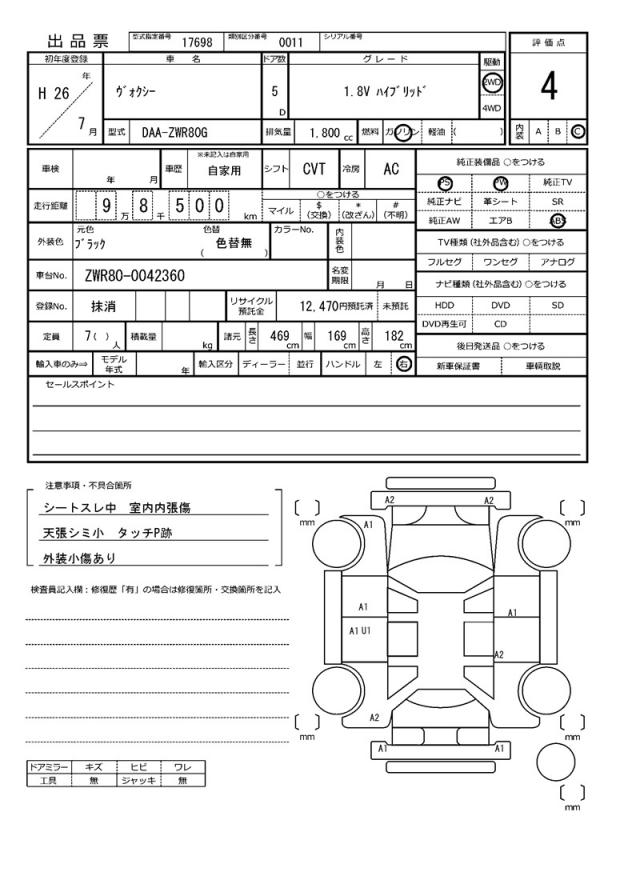 出品票 型式指定番号 17698 類別区分番号 0011 シリアル番号
評価点
4
内装 A B C
初年度登録 車名 ドア数 グレード 駆動
H 26 年 7 月 ヴォクシー 5 D 1.8V ハイブリッド 2WD 4WD
型式 DAA-ZWR80G 排気量 1.800 cc 燃料 ガソリン 軽油 ( )
車検 年 月 車歴 ※未記入は自家用 自家用 シフト CVT 冷房 AC
走行距離 9 万 8 千 5 0 0 km ○をつける
マイル $ (交換) * (改ざん) # (不明)
外装色 元色 ブラック 色替 ( 色替無 ) カラーNo. 内装色
車台No. ZWR80-0042360 名変期限 月 日
登録No. 抹消 リサイクル預託金 12,470円預託済 未預託
定員 7( ) 人 積載量 kg 諸元 長さ 469 cm 幅 169 cm 高さ 182 cm
輸入車のみ⇒ モデル年式 年 輸入区分 ディーラー 並行 ハンドル 左 右
純正装備品 ○をつける
PS PW 純正TV
純正ナビ 革シート SR
純正AW エアB ABS
TV種類(社外品含む)○をつける
フルセグ ワンセグ アナログ
ナビ種類(社外品含む)○をつける
HDD DVD SD
DVD再生可 CD
後日発送品 ○をつける
新車保証書 車輌取説
セールスポイント
注意事項・不具合箇所
シートスレ中 室内内張傷
天張シミ小 タッチP跡
外装小傷あり
検査員記入欄:修復歴「有」の場合は修復箇所・交換箇所を記入
ドアミラー キズ ヒビ ワレ
工具 無 ジャッキ 無
A2 A2
[ ] mm [ ] mm
A1
A1 A1
A1 U1
A2
A2
[ ] mm [ ] mm
A1 A1
[ ] mm